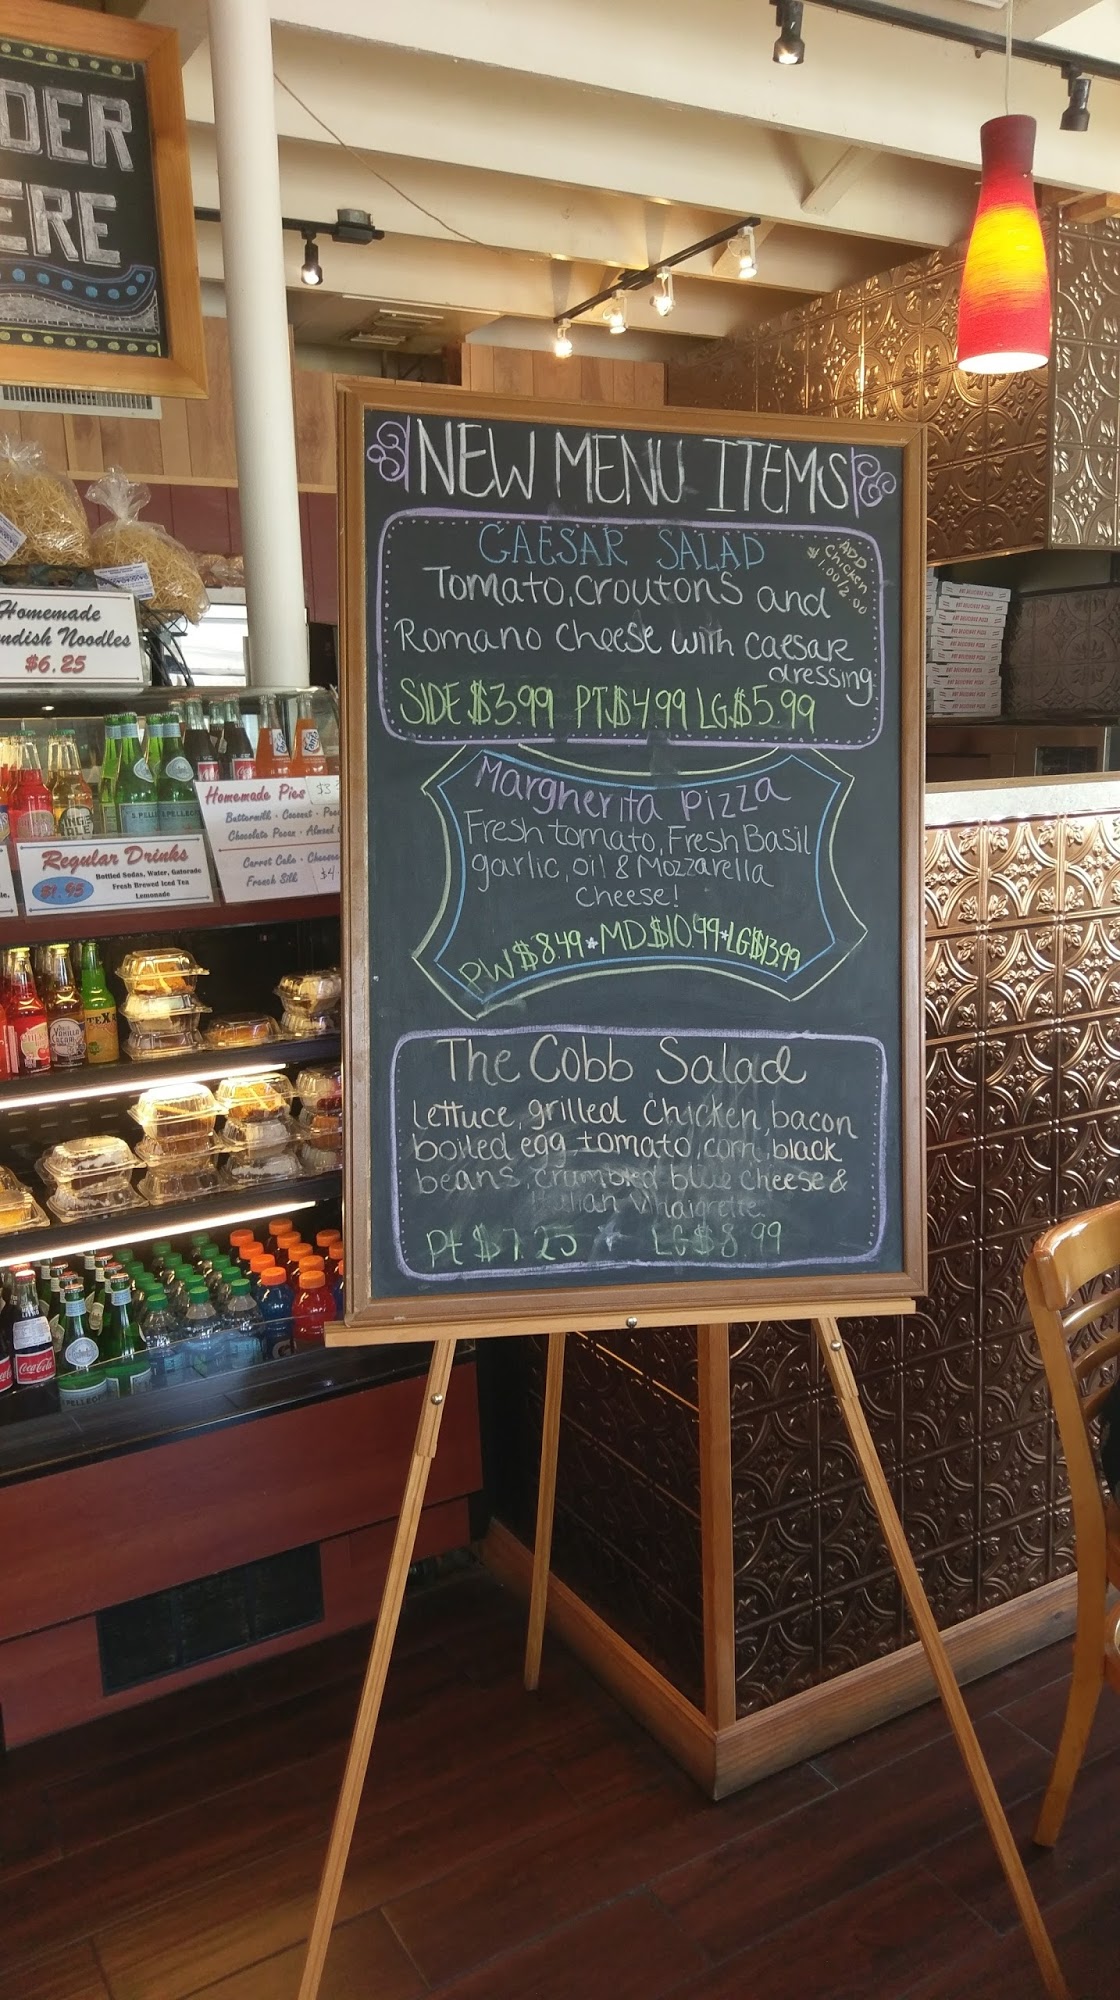 DER
ERE
NEW MENU ITEMS
CAESAR SALAD
ADD
Chicken
$1.00/2.00
Tomato, croutons and
Romano cheese with caesar
dressing
SIDE $3.99 PT $4.99 LG $5.99
Margherita Pizza
Fresh tomato, Fresh Basil
garlic, oil & Mozzarella
Cheese!
PW $8.49 * MD $10.99 * LG $13.99
The Cobb Salad
Lettuce, grilled chicken, bacon
boiled egg, tomato, corn, black
beans, crumbled blue cheese &
Italian Vinaigrette.
Pt $7.25 * LG $8.99
Homemade
ndish Noodles
$6.25
Homemade Pies $3
Buttermilk - Coconut - Pec
Chocolate Pecan - Almond
Carrot Cake - Cheese
French Silk $4
Regular Drinks
$1.95
Bottled Sodas, Water, Gatorade
Fresh Brewed Iced Tea
Lemonade
S.PELLEGRINO
Coca-Cola
HOT DELICIOUS PIZZA